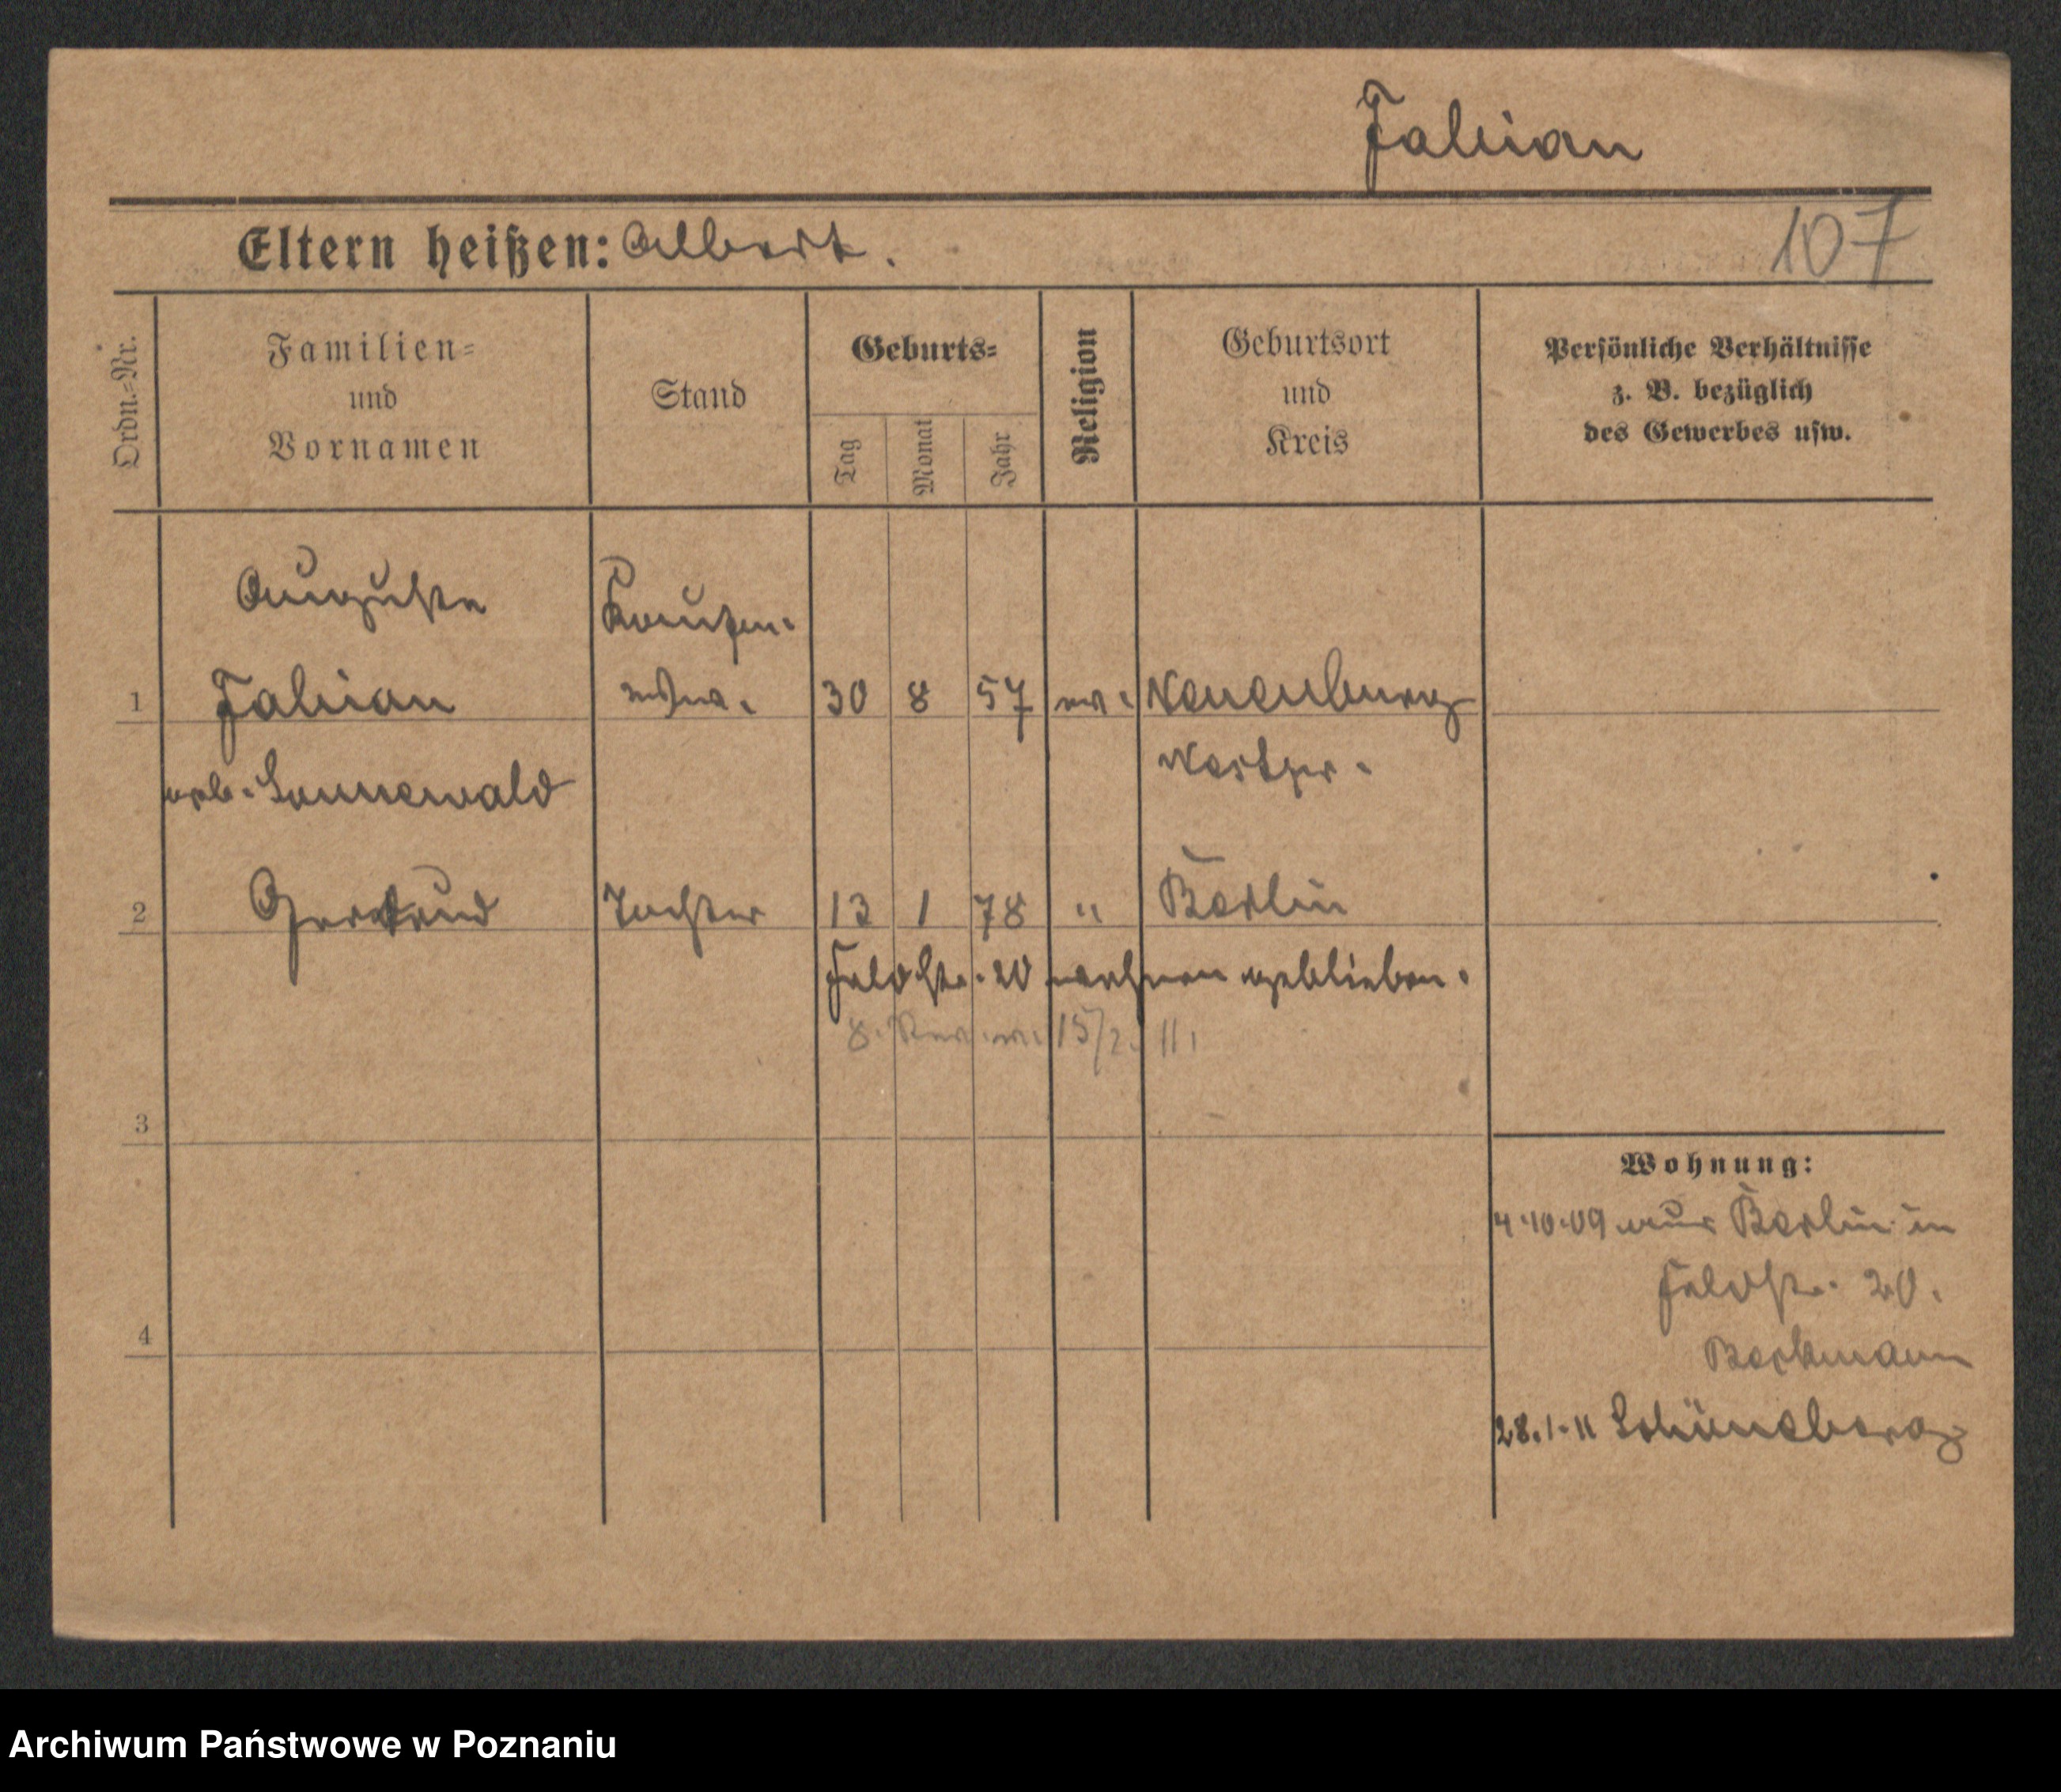 Fabian
Eltern heißen: Albert.
107
Ordn.-Nr.
Familien- und Vornamen
Stand
Geburts-
Tag
Monat
Jahr
Religion
Geburtsort und Kreis
Persönliche Verhältnisse z. B. bezüglich des Gewerbes usw.
Auguste
1 Fabian 30 8 57 ev. Neuenburg
geb. Sonnewald Westpr.
2 Gertrud Tochter 13 1 78 " Berlin
Feldstr. 20 wohnen geblieben.
8. Rev. 15/2. 11.
3
4
Wohnung:
4.10.09 aus Berlin in
Feldstr. 20.
28.1.11 Schöneberg
Archiwum Państwowe w Poznaniu